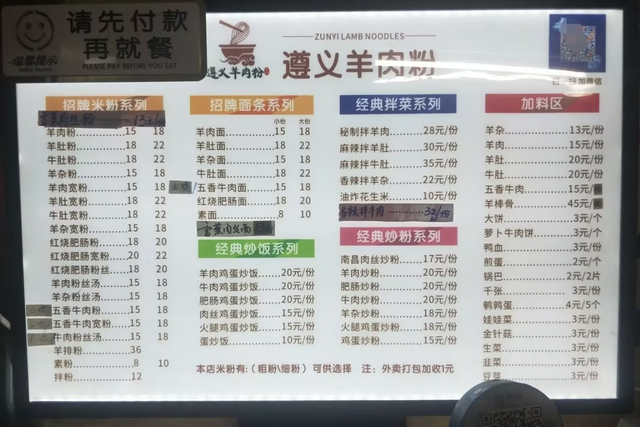 请先付款
再就餐
温馨提示
PLEASE PAY BEFORE YOU EAT
遵义羊肉粉
ZUNYI LAMB NOODLES
遵义羊肉粉
招牌米粉系列
羊肉粉 15 18
羊肚粉 18 22
牛肚粉 18 22
羊杂粉 15 18
羊肉宽粉 15 18
羊肚宽粉 18 22
牛肚宽粉 18 22
羊杂宽粉 15 18
红烧肥肠粉 18 20
红烧肥肠宽粉 20 22
红烧肥肠粉丝 18 20
羊肉粉丝汤 15 18
羊杂粉丝汤 15 18
五香牛肉粉 15 18
五香牛肉宽粉 15 18
牛肉粉丝汤 15 18
羊排粉 36
素粉 8 10
拌粉 12
招牌面条系列
小份 大份
羊肉面 15 18
羊肚面 18 22
羊杂面 15 18
牛肚面 18 22
五香牛肉面 15 18
红烧肥肠面 18 20
素面 8 10
经典炒饭系列
羊肉鸡蛋炒饭 20元/份
牛肉鸡蛋炒饭 20元/份
肥肠鸡蛋炒饭 20元/份
肉丝鸡蛋炒饭 15元/份
火腿鸡蛋炒饭 15元/份
蛋炒饭 10元/份
经典拌菜系列
秘制拌羊肉 28元/份
麻辣拌羊肚 30元/份
麻辣拌牛肚 35元/份
香辣拌羊杂 22元/份
油炸花生米 10元/份
香辣拌牛肉 32/份
经典炒粉系列
南昌肉丝炒粉 17元/份
羊肉炒粉 20元/份
肥肠炒粉 20元/份
牛肉炒粉 20元/份
羊杂炒粉 18元/份
火腿鸡蛋炒粉 18元/份
鸡蛋炒粉 15元/份
加料区
羊杂 13元/份
羊肉 15元/份
羊肚 20元/份
牛肚 20元/份
五香牛肉 15元/份
羊棒骨 45元/
大饼 3元/个
萝卜牛肉饼 3元/个
鸭血 3元/份
煎蛋 2元/个
锅巴 2元/2片
千张 3元/份
鹌鹑蛋 4元/5个
娃娃菜 3元/份
金针菇 3元/份
生菜 3元/份
韭菜 3元/份
豆芽 3元/份
本店米粉有:(粗粉\细粉) 可供选择 注: 外卖打包加收1元